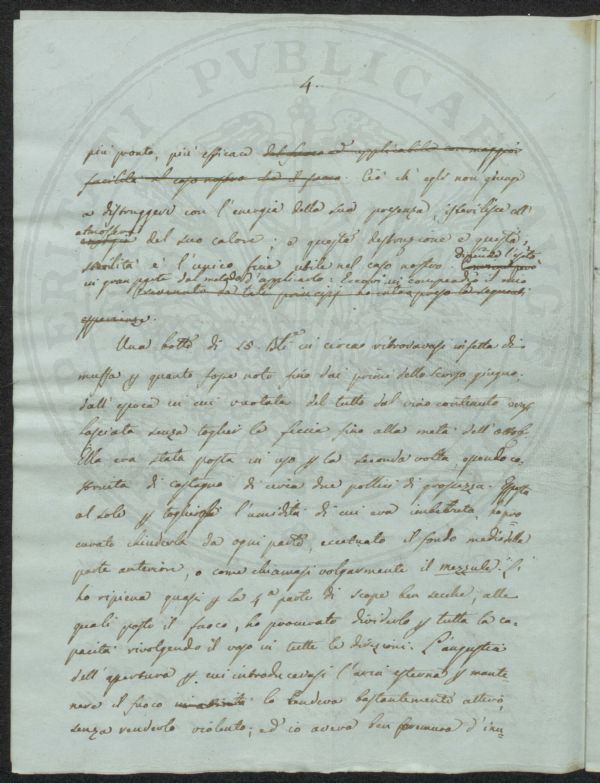 4.
più pronto, più efficace del fuoco ed applicabile con maggior
facilità al caso nostro che il fumo. Ciò ch'egli non giunge
a distruggere con l'energia della sua presenza, isterilisce all'
atmosfera
energia del suo calore; e questa destruzione e questa
sterilità è l'unico fine utile nel caso nostro. Dipende l'esito
in gran parte dal metodo d'applicarlo. Eccone in compendio il mio
Convinto da tali principj ho intrapreso le seguenti
esperienze.
Una botte di 15 in circa ritrovavasi infetta di
muffa p quanto fosse noto sino dai primi dello scorso giugno
dall'epoca in cui vuotata del tutto dal vino contenuto
lasciata senza togliere la feccia sino alla metà dell'
Ella era stata posta in uso p la seconda volta, essendo co-
struita di castagno di circa due pollici di grossezza. Esposta
al sole p togliergli l'umidità di cui era imbevuta, ho pro
curato chiuderla da ogni parte, eccettuato il fondo
parte anteriore, o come chiamasi volgarmente il mezzule.
ho ripiena quasi p la 4a parte di scope ben secche, alle
quali posto il fuoco, ho procurato dividerlo p tutta la ca-
pacità rivolgendo il vaso in tutte le direzioni. L'angustia
dell'apertura p cui introducevasi l'aria esterna p mante
nere il fuoco lo rendeva bastantemente attivo,
senza renderlo violento; ed io aveva ben premura d'inu-